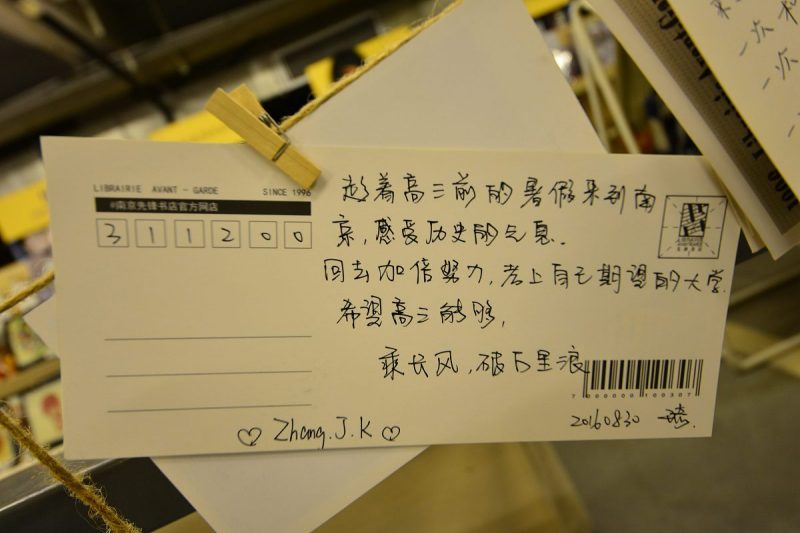 LIBRAIRIE AVANT-GARDE SINCE 1996
@南京先锋书店官方网店
311200
趁着高三前的暑假来到南
京,感受历史的气息.
回去加倍努力,考上自己期望的大学.
希望高三能够,
乘长风,破万里浪
7000000100307
20160830
♡ Zhang.J.K ♡
1000
一次
一次